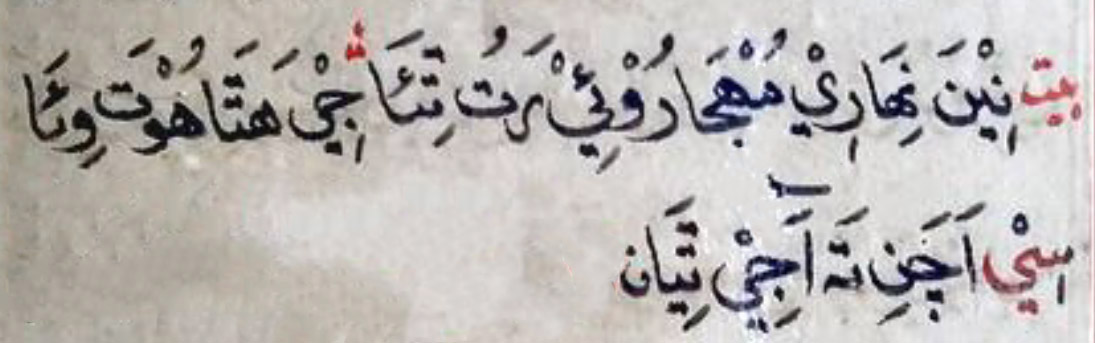 بيت نِيْنَ نِهَارِيْ مُنْهجَا رُوْئِيْ رَتُ تِئَا جِيْ هَتَا هُوْتَ وِئَا
سِيْ اَچَنِ نَہ اَجِيْ تِيَان